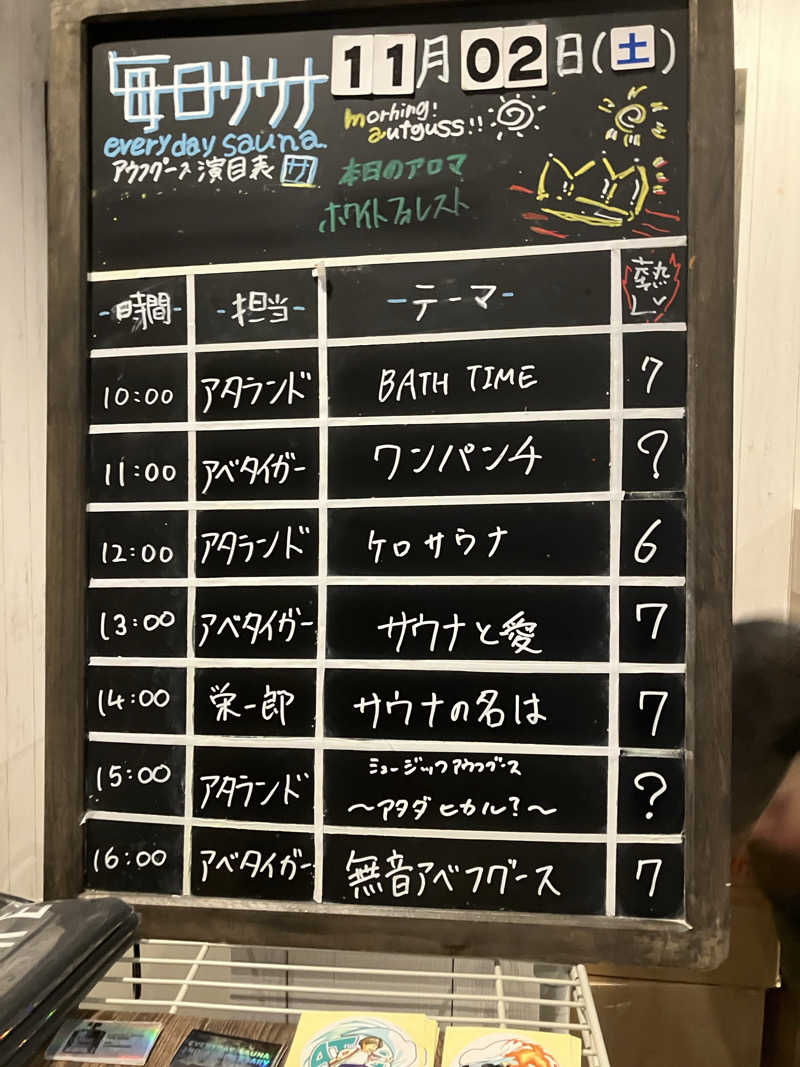 毎日サウナ
11月02日(土)
everyday sauna.
morning!
autguss!!
アウフグース演目表
本日のアロマ
ホワイトフォレスト
時間 担当 テーマ 熱レv
10:00 アタランド BATH TIME 7
11:00 アベタイガー ワンパンチ ?
12:00 アタランド ケロサウナ 6
13:00 アベタイガー サウナと愛 7
14:00 栄一郎 サウナの名は 7
15:00 アタランド ミュージックアウフグース
〜アタダヒカル?〜 ?
16:00 アベタイガー 無音アベフグース 7
EVERYDAY SAUNA